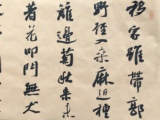 移家雖帶郭
野徑入桑麻近種
籬邊菊秋來未
著花叩門無犬